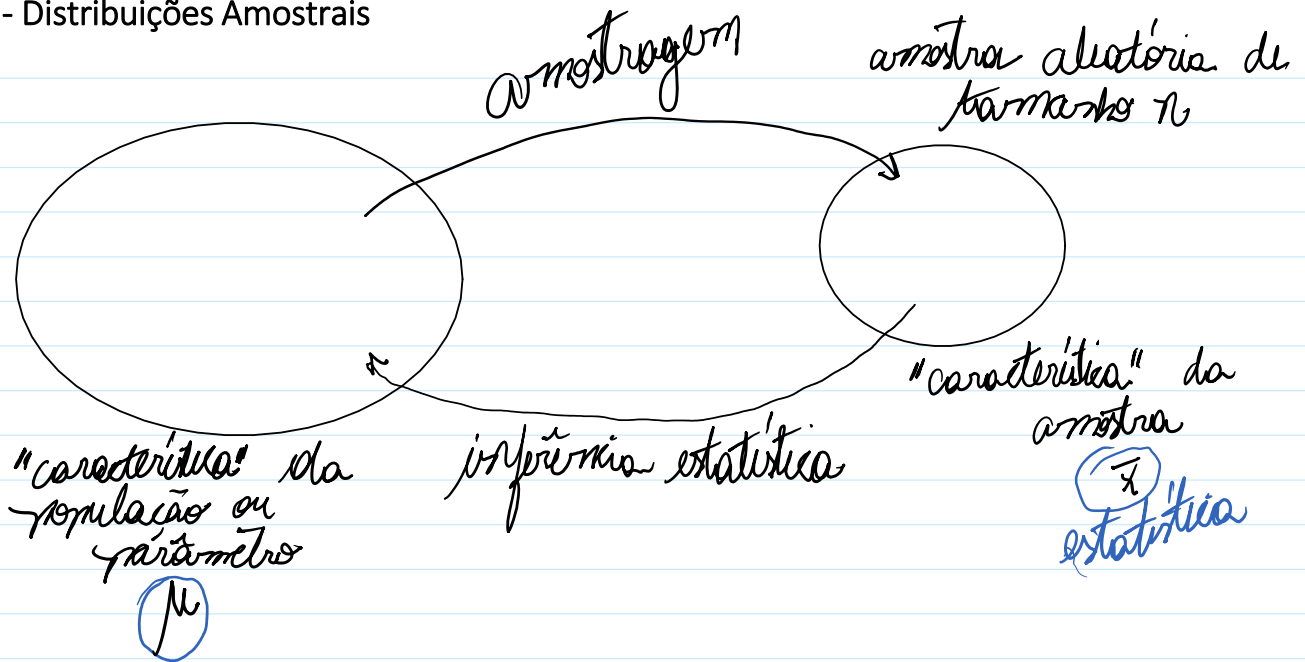 - Distribuições Amostrais
amostragem
amostra aleatória de
tamanho n
"característica" da
amostra
x̄
estatística
inferência estatística
"característica" da
população ou
parâmetro
μ